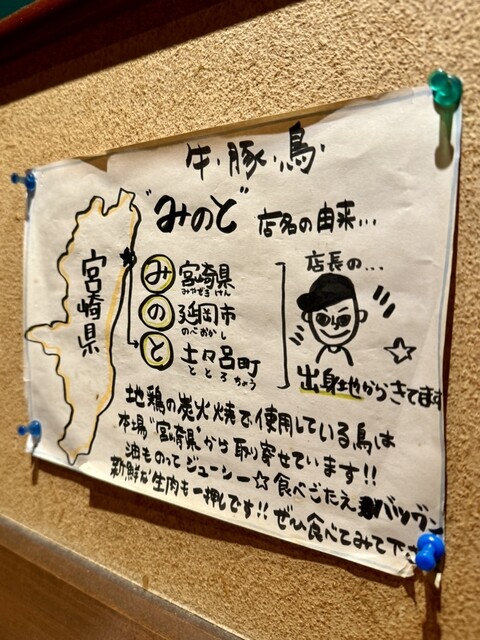 牛・豚・鳥・
"みのと" 店名の由来...
宮崎県
み 宮崎県
みやざき けん
の 延岡市
のべおかし
と 土々呂町
ととろ ちょう
店長の...
出身地からきてます
地鶏の炭火焼で使用している鳥は
本場"宮崎県"から取り寄せています!!
油ものってジューシー☆食べごたえバツグン
新鮮な生肉も一押しです!!ぜひ食べてみて下さ